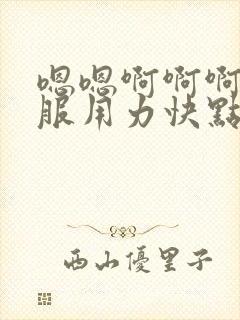 嗯嗯啊啊啊
服用力快點
西山優里子